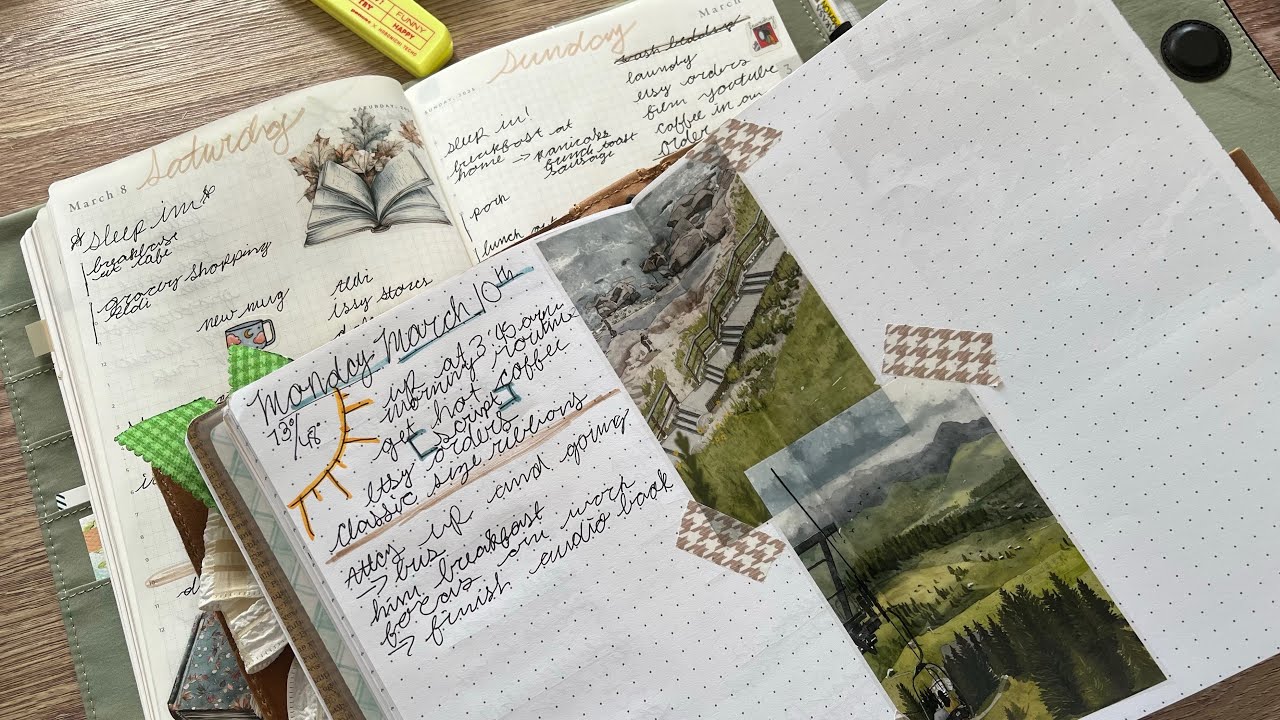 FUNNY
TRY
HAPPY
HOBONICHI TECHO
Saturday
March 8
SATURDAY, 2025
sleep in
breakfast
at cafe
grocery shopping
aldi
new mug
aldi
Sunday
March
SUNDAY, 2025
sleep in!
breakfast at
home →
french toast
sausage
lunch at
wash bedding
laundry
etsy orders
film youtube
coffee in am
order
Monday March 10th
73°/48°
up at 3:45am
morning routine
get hot coffee
[script]
Etsy orders
classic size ribbons
up and going
→ bus
him breakfast
focus on work
→ finish audio book